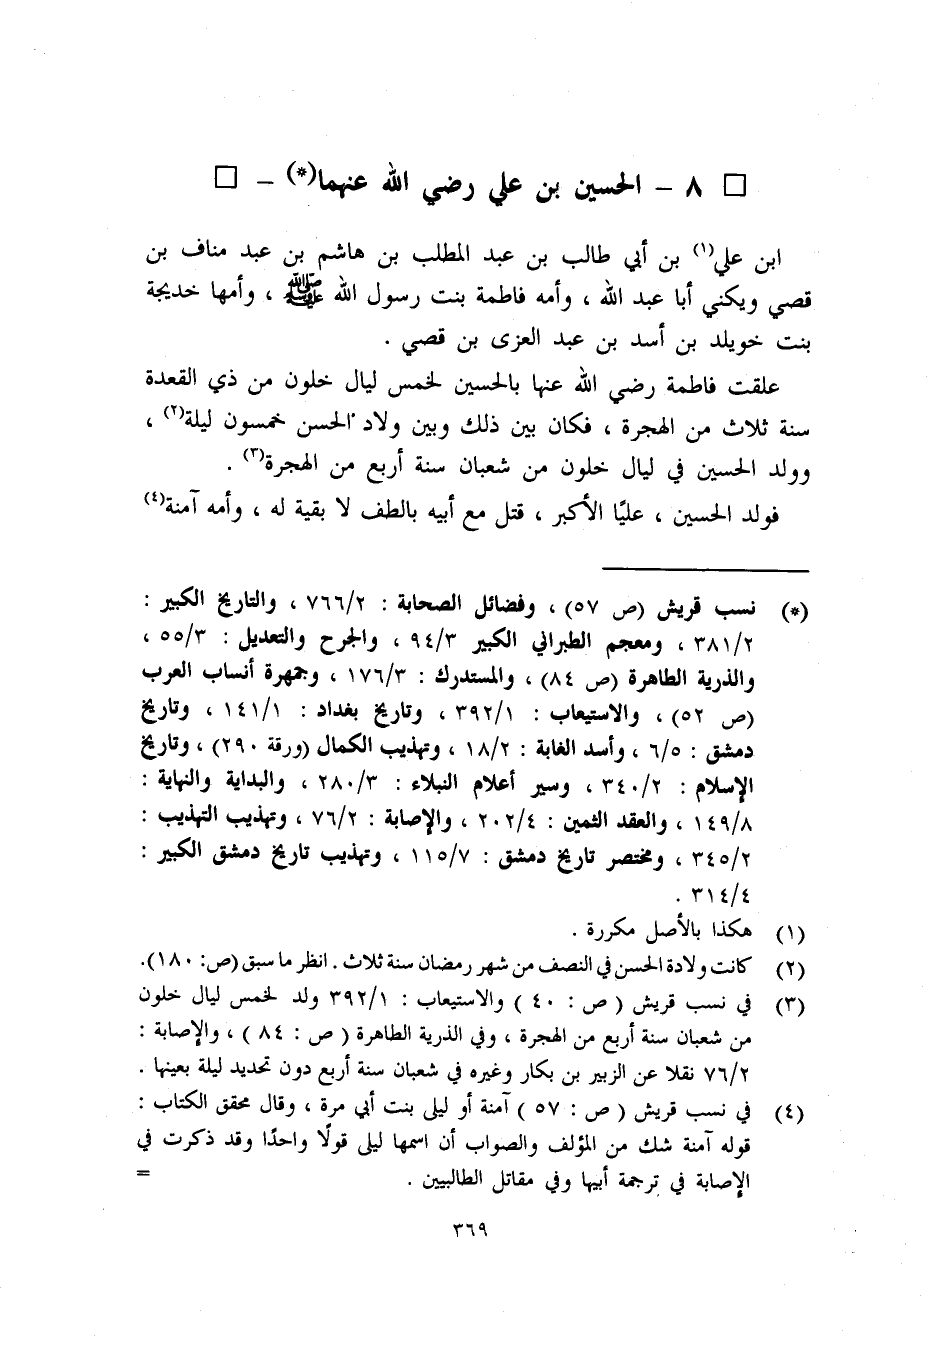 □ ٨ – الحسين بن علي رضي الله عنهما(*) – □
ابن علي(١) بن أبي طالب بن عبد المطلب بن هاشم بن عبد مناف بن
قصي ويكني أبا عبد الله ، وأمه فاطمة بنت رسول الله ﷺ ، وأمها خديجة
بنت خويلد بن أسد بن عبد العزى بن قصي .
علقت فاطمة رضي الله عنها بالحسين لخمس ليال خلون من ذي القعدة
سنة ثلاث من الهجرة ، فكان بين ذلك وبين ولاد الحسن خمسون ليلة(٢) ،
وولد الحسين في ليال خلون من شعبان سنة أربع من الهجرة(٣) .
فولد الحسين ، عليًا الأكبر ، قتل مع أبيه بالطف لا بقية له ، وأمه آمنة(٤)
(*) نسب قريش (ص ٥٧) ، وفضائل الصحابة : ٧٦٦/٢ ، والتاريخ الكبير :
٣٨١/٢ ، ومعجم الطبراني الكبير ٩٤/٣ ، والجرح والتعديل : ٥٥/٣ ،
والذرية الطاهرة (ص ٨٤) ، والمستدرك : ١٧٦/٣ ، وجمهرة أنساب العرب
(ص ٥٢) ، والاستيعاب : ٣٩٢/١ ، وتاريخ بغداد : ١٤١/١ ، وتاريخ
دمشق : ٦/٥ ، وأسد الغابة : ١٨/٢ ، وتهذيب الكمال (ورقة ٢٩٠) ، وتاريخ
الإسلام : ٣٤٠/٢ ، وسير أعلام النبلاء : ٢٨٠/٣ ، والبداية والنهاية :
١٤٩/٨ ، والعقد الثمين : ٢٠٢/٤ ، والإصابة : ٧٦/٢ ، وتهذيب التهذيب :
٣٤٥/٢ ، ومختصر تاريخ دمشق : ١١٥/٧ ، وتهذيب تاريخ دمشق الكبير :
٣١٤/٤ .
(١) هكذا بالأصل مكررة .
(٢) كانت ولادة الحسن في النصف من شهر رمضان سنة ثلاث . انظر ما سبق (ص: ١٨٠).
(٣) في نسب قريش ( ص : ٤٠ ) والاستيعاب : ٣٩٢/١ ولد لخمس ليال خلون
من شعبان سنة أربع من الهجرة ، وفي الذرية الطاهرة ( ص : ٨٤ ) ، والإصابة :
٧٦/٢ نقلا عن الزبير بن بكار وغيره في شعبان سنة أربع دون تحديد ليلة بعينها .
(٤) في نسب قريش ( ص : ٥٧ ) آمنة أو ليلى بنت أبي مرة ، وقال محقق الكتاب :
قوله آمنة شك من المؤلف والصواب أن اسمها ليلى قولًا واحدًا وقد ذكرت في
الإصابة في ترجمة أبيها وفي مقاتل الطالبيين . =
٣٦٩